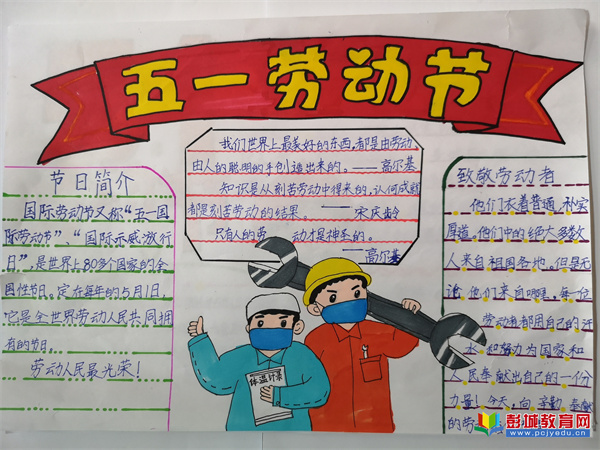 五一劳动节
我们世界上最美好的东西,都是由劳动
由人的聪明的手创造出来的。——高尔基
知识是从刻苦劳动中得来的,认何成就
都是刻苦劳动的结果。——宋庆龄
只有人的劳动才是神圣的。
——高尔基
节日简介
国际劳动节又称“五一国
际劳动节”、“国际示威游行
日”,是世界上80多个国家的全
国性节日。定在每年的5月1日,
它是全世界劳动人民共同拥
有的节日。
劳动人民最光荣!
致敬劳动者
他们衣着普通,朴实
厚道。他们中的绝大多数
人来自祖国各地。但是无
论他们来自哪里,每一位
劳动者都用自己的汗
水和努力为国家和
人民奉献出自己的一份
力量!今天,向辛勤、奉献
的劳
体温计录
彭城教育网
www.pcjyedu.cn